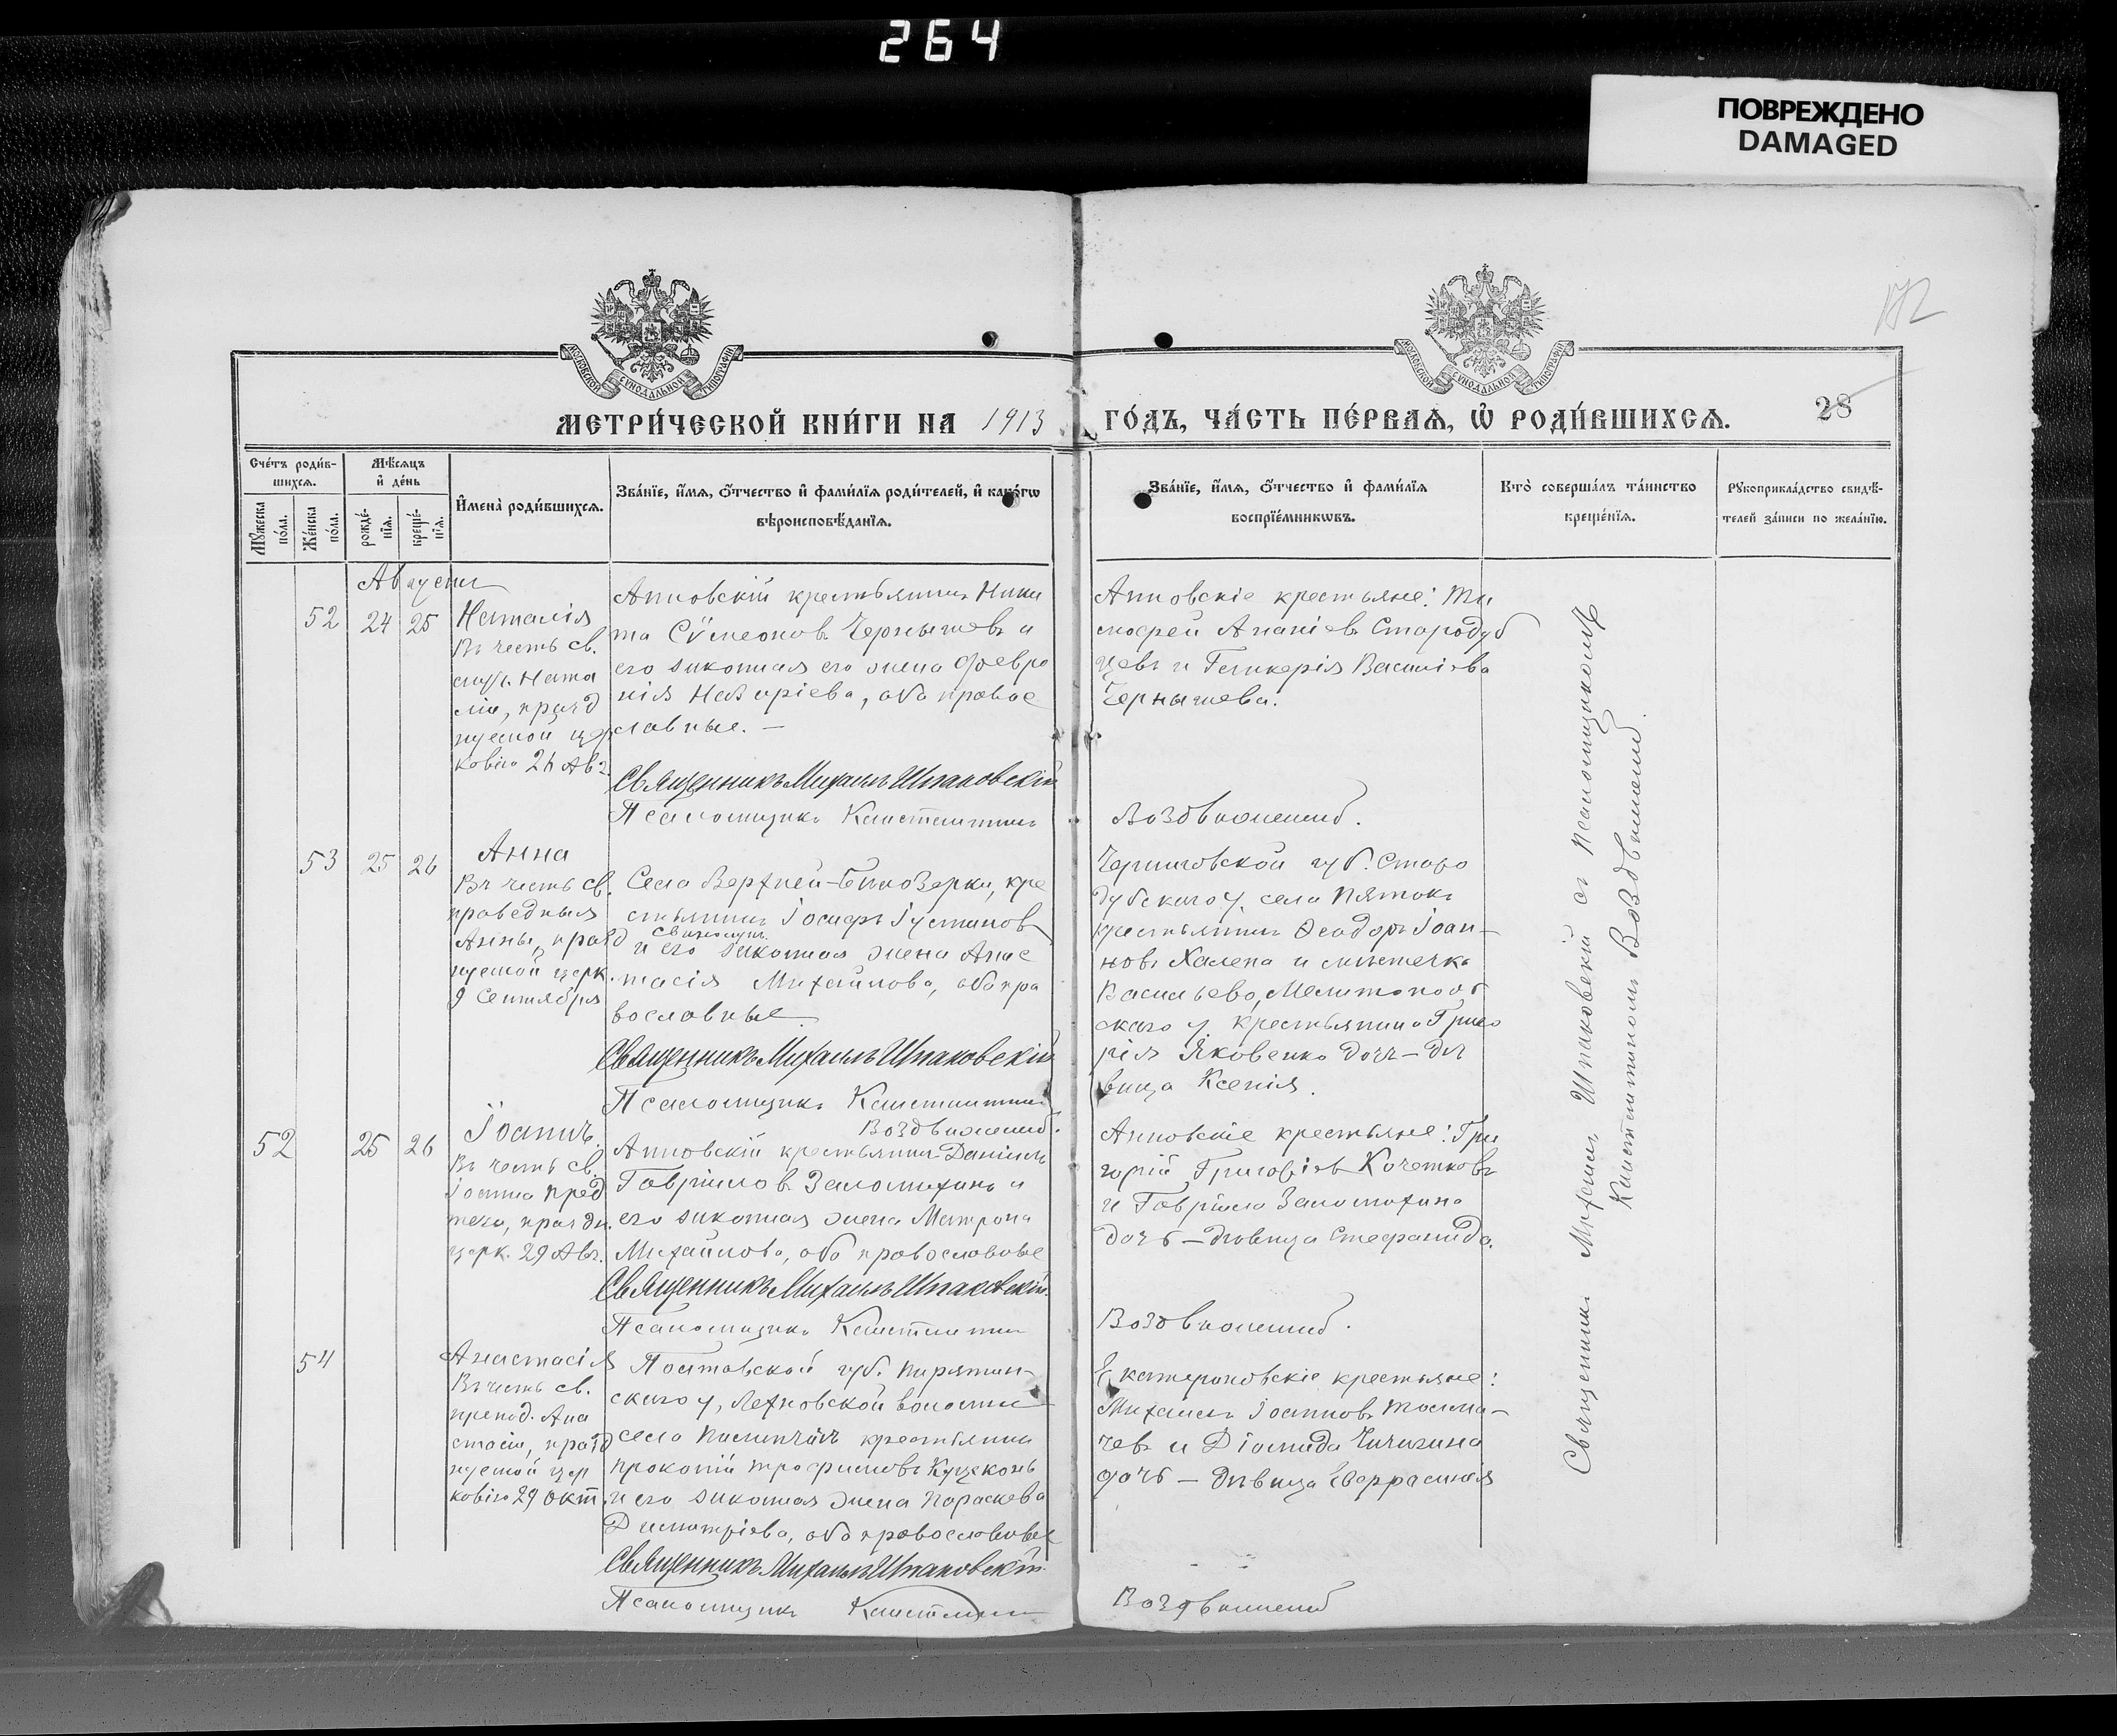 264
ПОВРЕЖДЕНО
DAMAGED
172
МОСКОВСКОЙ СѴНОДАЛЬНОЙ ТИПОГРАФІИ
МОСКОВСКОЙ СѴНОДАЛЬНОЙ ТИПОГРАФІИ
МЕТРИ́ЧЕСКОЙ КНИ́ГИ НА 1913 ГО́ДЪ, ЧА́СТЬ ПЕ́РВАѦ, Ѡ РОДИ́ВШИХСѦ.
28
Сче́тъ роди́в-
шихсѧ.
Мꙋ́жеска по́ла.
Же́нска по́ла.
Мѣ́сѧцъ
и де́нь
рожде́-
нїѧ.
креще́-
нїѧ.
И҆мена̀ роди́вшихсѧ.
Зва́нїе, и҆́мѧ, ѻ҆́тчество и҆ фами́лїѧ роди́телей, и҆ како́гѡ
вѣроисповѣ́данїѧ.
Зва́нїе, и҆́мѧ, ѻ҆́тчество и҆ фами́лїѧ
воспрїе́мникѡвъ.
Кто̀ соверша́лъ та́инство
креще́нїѧ.
Рꙋкоприкла́дство свидѣ́-
телей за́писи по жела́нїю.
Августъ
52 24 25
Наталія
Въ честь св.
муч. Ната
ліи, празд
нуемой цер
ковію 26 Авг.
Анновскій крестьянинъ Ники
та Сѵмеоновъ Чернышевъ и
его законная его жена Февро
нія Назаріева, оба правос
лавные. —
Священникъ Михаилъ Шпаковскій
Псаломщикъ Константинъ
Анновскіе крестьяне: Ти
мофей Ананіевъ Стародуб
цевъ и Гликерія Василіева
Чернышева.
Воздвиженскій.
53 25 26
Анна
Въ честь св.
праведныя
Анны, празд
нуемой церк.
9 Сентября
Села Верхней-Бѣлозерки, кре
стьянинъ Іосифъ Іустиновъ
и его законная жена Анас
тасія Михайлова, оба пра
вославные.
Священникъ Михаилъ Шпаковскій
Псаломщикъ Константинъ
Воздвиженскій.
Черниговской губ. Старо
дубскаго у. села Пятокъ
крестьянинъ Ѳеодоръ Іоан-
новъ Халепа и мѣстечка
Васильево, Мелитопольс
скаго у. крестьянина Григо
рія Яковенко дочь — дѣ
вица Ксенія.
52 25 26
Іоаннъ.
Въ честь св.
Іоанна Пред
течи, праздн.
церк. 29 Авг.
Анновскій крестьянинъ Даніилъ
Гавріиловъ Заломихинъ и
его законная жена Матрона
Михайлова, оба православные
Священникъ Михаилъ Шпаковскій.
Псаломщикъ Константинъ
Анновскіе крестьяне: Гри
горій Григоріевъ Кочетковъ
и Гавріила Заломихина
дочь — дѣвица Стефанида.
Воздвиженскій.
54
Анастасія
Въ честь св.
препод. Ана
стасіи, празд
нуемой цер
ковію 29 Окт.
Полтавской губ. Пирятин-
скаго у, Лехновской волости
села крестьянинъ
Прокопій Трофимовъ
и его законная жена Параскева
Димитріева, оба православные
Священникъ Михаилъ Шпаковскій.
Псаломщикъ Константинъ
Екатериновскіе крестьяне:
Михаилъ Іоанновъ Толма-
чевъ и Діомида Чичигина
дочь — дѣвица Евфрасинія
Воздвиженскій
Священникъ Михаилъ Шпаковскій съ псаломщикомъ
Константиномъ Воздвиженскимъ